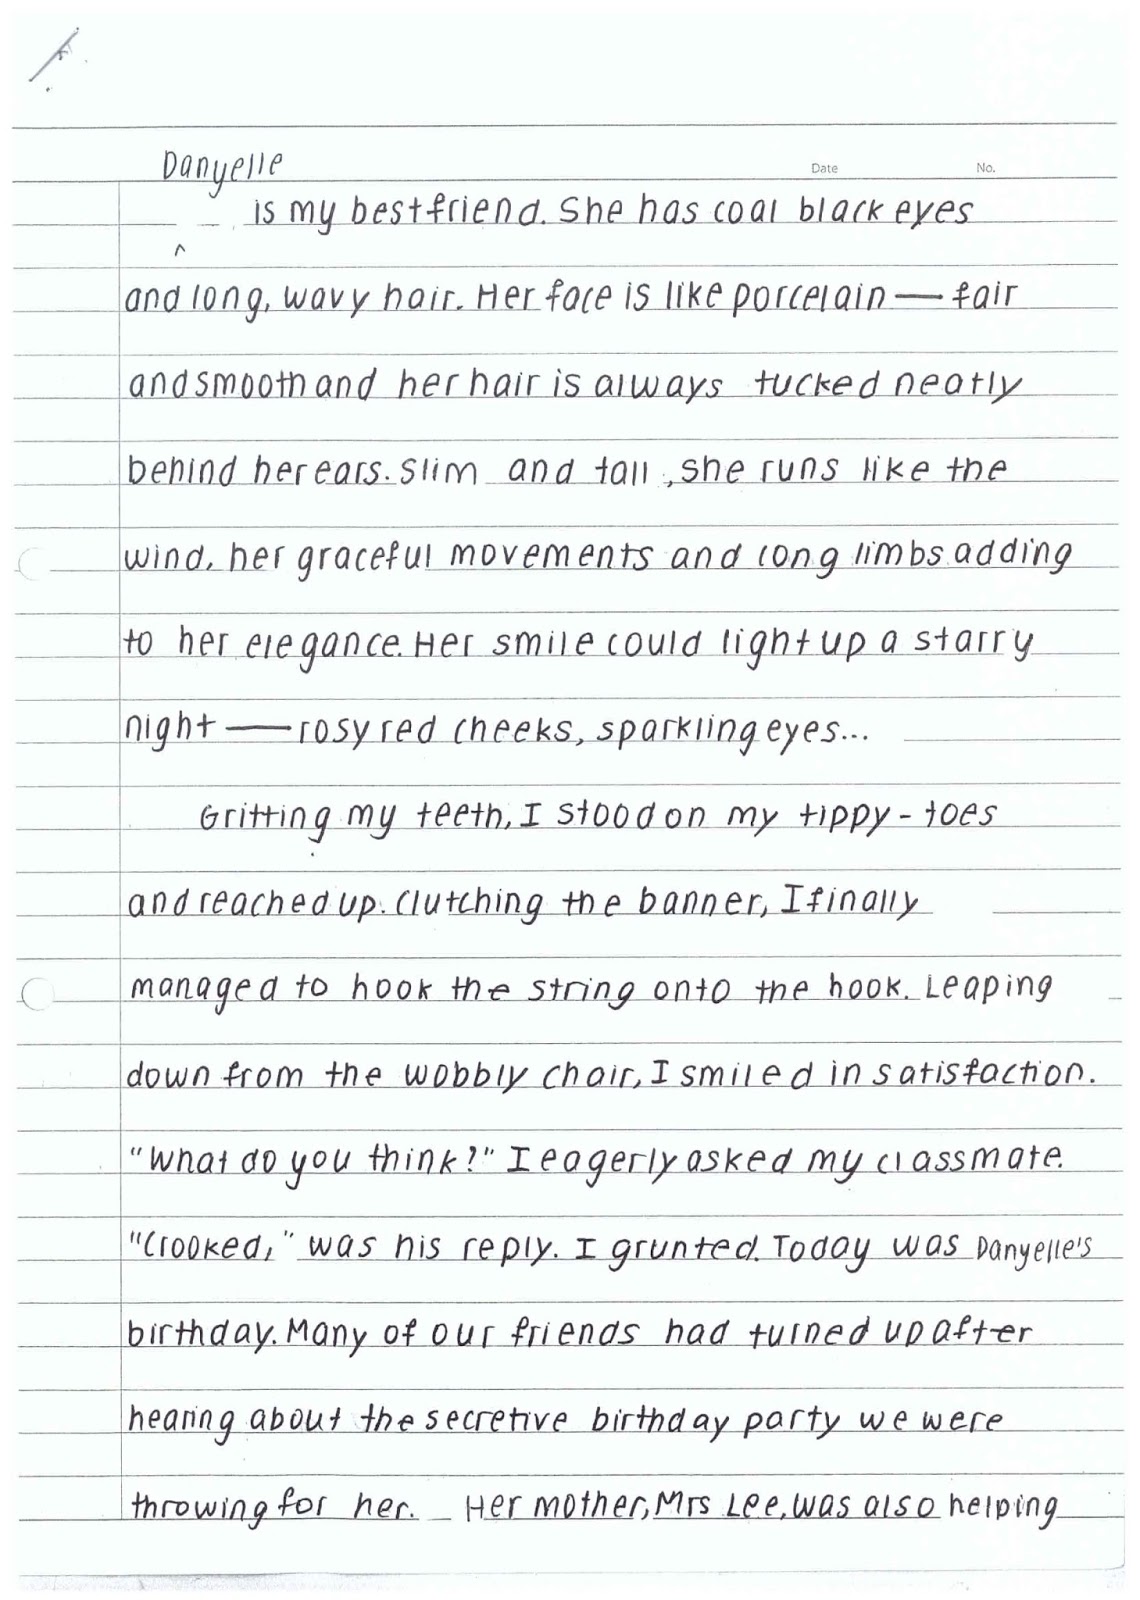 Danyelle
Date No.
is my best friend. She has coal black eyes
^
and long, wavy hair. Her face is like porcelain — fair
and smooth and her hair is always tucked neatly
behind her ears. Slim and tall, she runs like the
wind, her graceful movements and long limbs adding
to her elegance. Her smile could light up a starry
night — rosy red cheeks, sparkling eyes...
Gritting my teeth, I stood on my tippy-toes
and reached up. Clutching the banner, I finally
managed to hook the string onto the hook. Leaping
down from the wobbly chair, I smiled in satisfaction.
"What do you think?" I eagerly asked my classmate.
"Crooked," was his reply. I grunted. Today was Danyelle's
birthday. Many of our friends had turned up after
hearing about the secretive birthday party we were
throwing for her. Her mother, Mrs Lee, was also helping